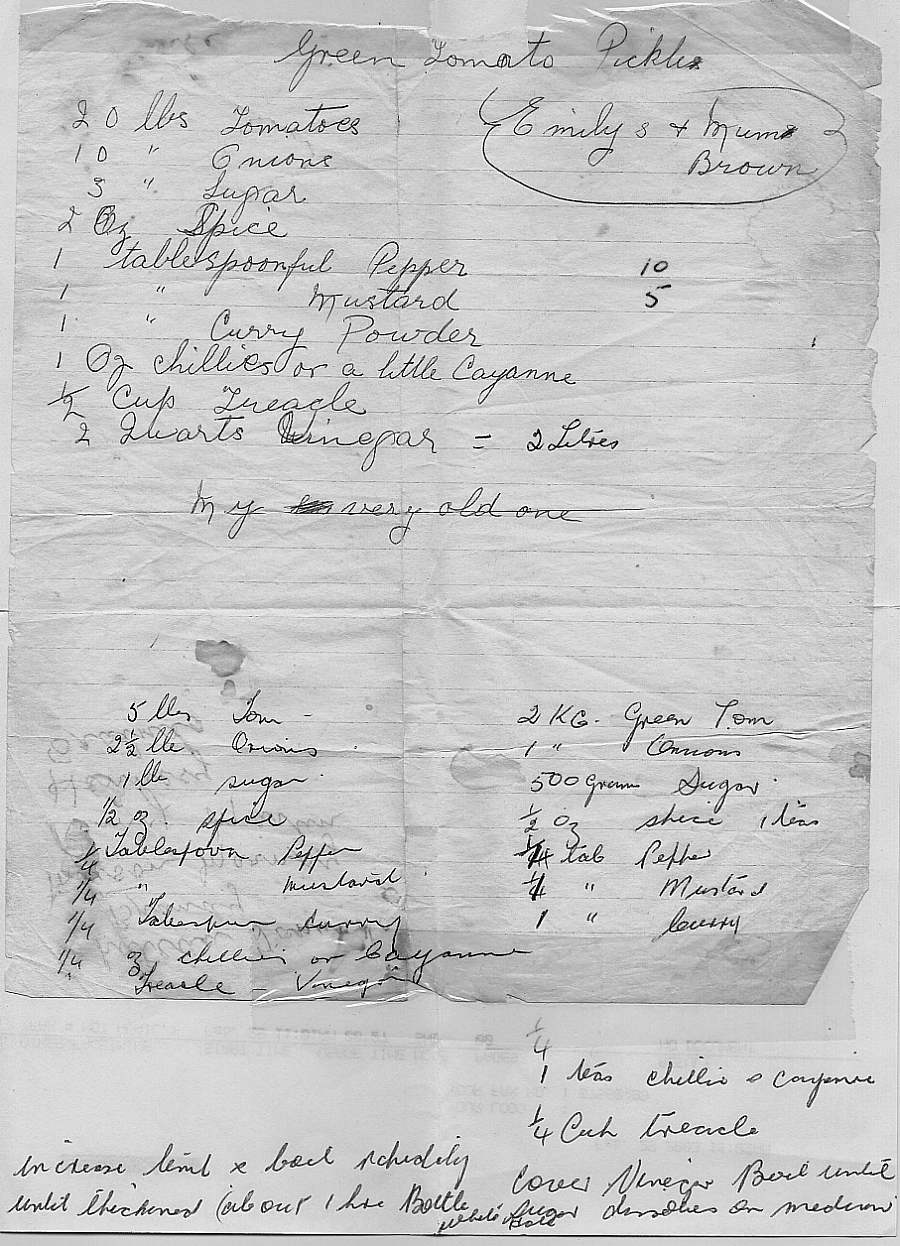 Green Tomato Pickle
Emily s + Mums
Brown
20 lbs Tomatoes
10 " Onions
3 " Sugar
2 Oz Spice
1 tablespoonful Pepper
1 " Mustard
1 " Curry Powder
1 Oz chillies or a little Cayanne
1/2 Cup Treacle
2 Quarts Vinegar = 2 Litres
10
5
My very old one
5 lbs Tom -
2 1/2 lbs Onions
1 lb sugar
1/2 oz spice
1/4 Tablespoon Pepper
1/4 " mustard
1/4 Tabespun curry
1/4 oz chillies or Cayanne
Treacle - Vinegar
2 KG. Green Tom
1 " Onnions
500 Gram Sugar
1/2 Oz spice 1 teas
1/4 tab Pepper
1/4 " Mustard
1 " Curry
1/4
1 teas chillie o cayenne
1/4 Cup treacle
Cover Vinegar Boil until
sugar dissolves on medium
increase & boil
until thickened (about 1 hr Bottle
while